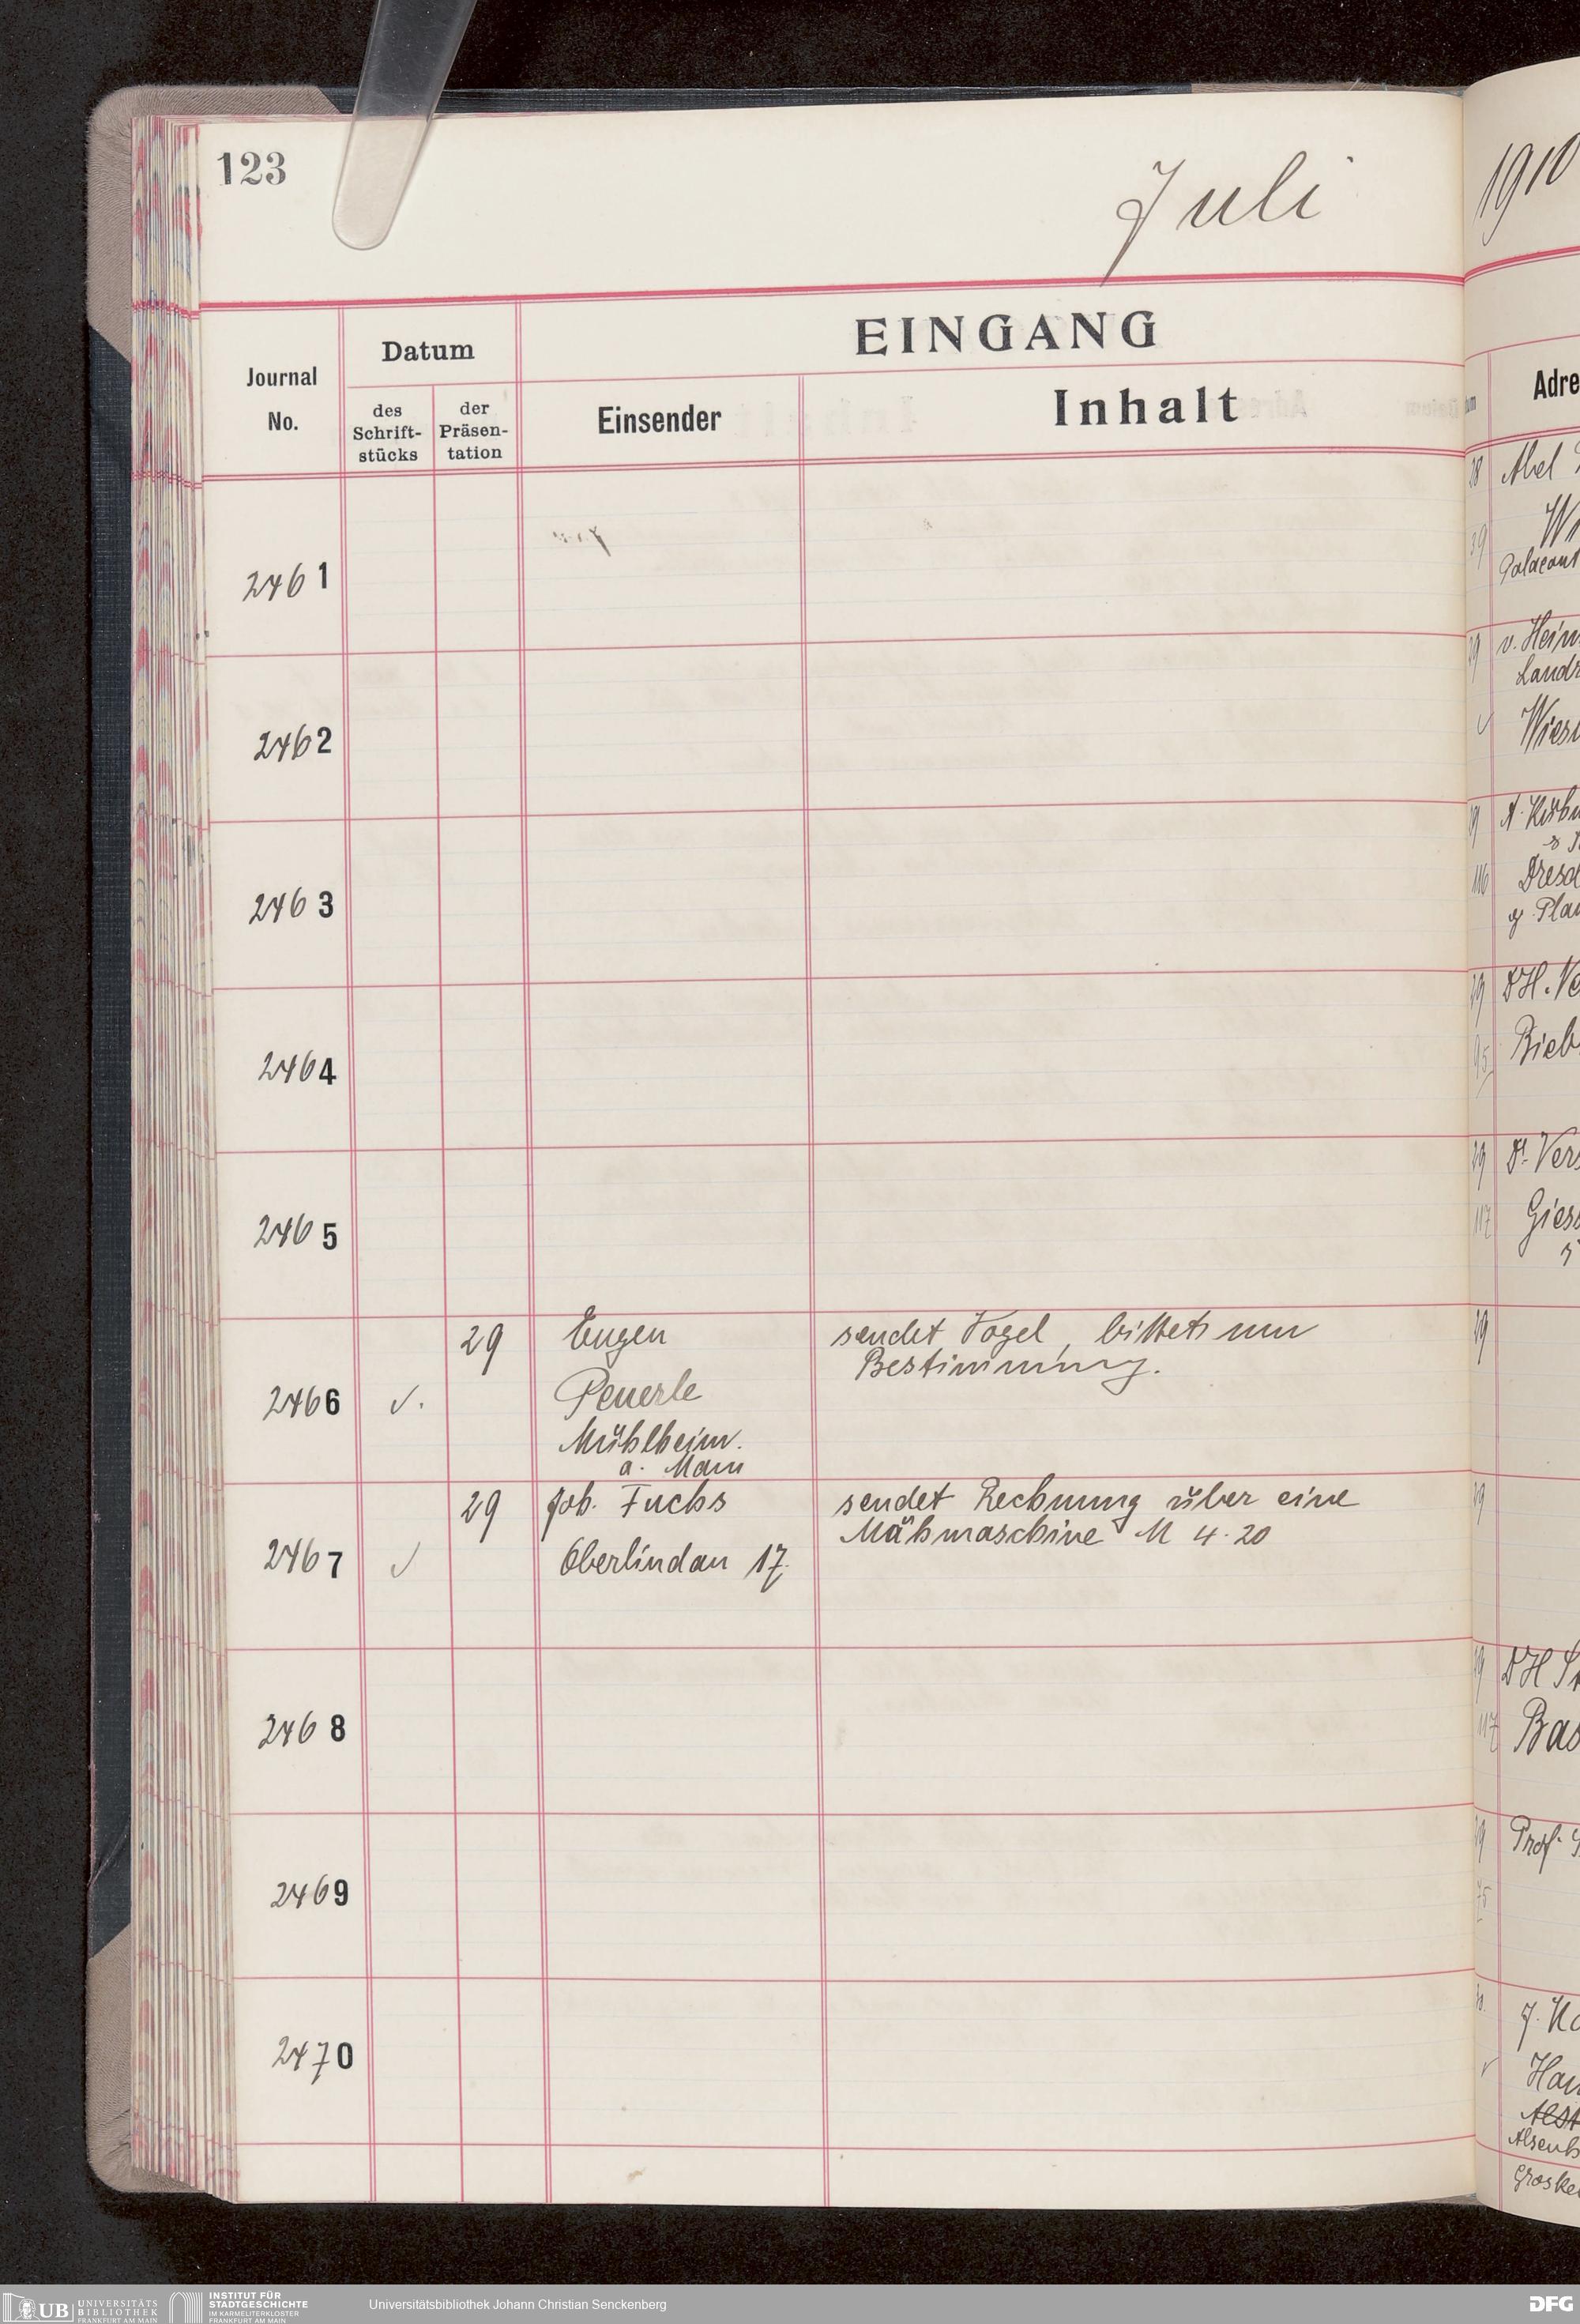 123
Juli
1910
EINGANG
Journal
No.
Datum
des
Schrift-
stücks
der
Präsen-
tation
Einsender
Inhalt
Adre
2461
2462
2463
2464
2465
2466 ✓. 29 Eugen sendet Vogel, bittet um
Bestimmung.
Peuerle
Mühlheim.
a. Main
2467 ✓ 29 Joh. Fuchs sendet Rechnung über eine
Mähmaschine M 4.20
Oberlindau 17.
2468
2469
2470
28 Abel
v. Hein
Landr
Wies
Dresd
29 DH. Ve
Bieb
29 Dr. Vers
117 Giess
29
29
29 DH St
117 Bas
29 Prof.
75
Han
Alsenb
UB UNIVERSITÄTS
BIBLIOTHEK
FRANKFURT AM MAIN
INSTITUT FÜR
STADTGESCHICHTE
IM KARMELITERKLOSTER
FRANKFURT AM MAIN
Universitätsbibliothek Johann Christian Senckenberg
DFG